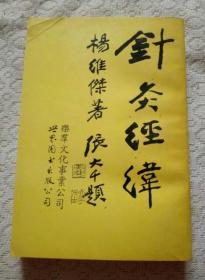 針灸經緯
楊維傑著 張大千題
樂群文化事業公司
世界图书出版公司